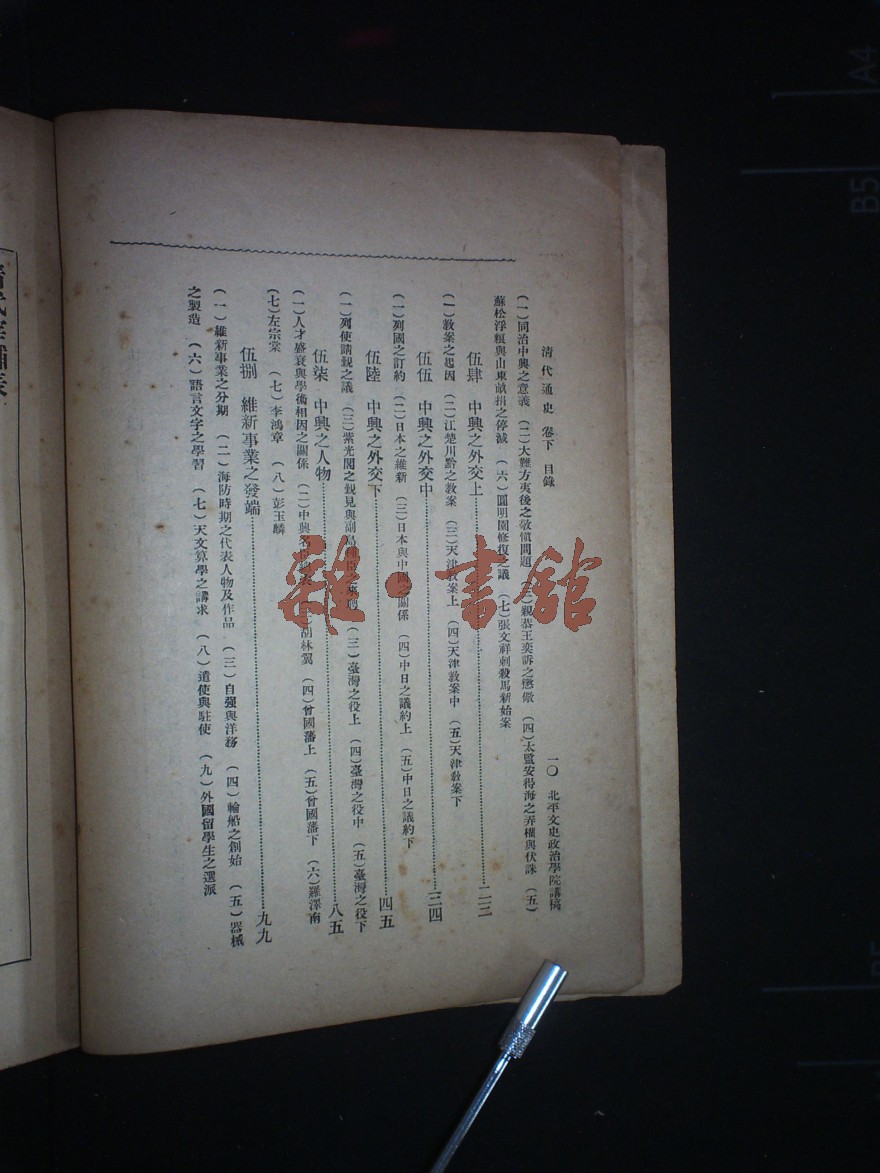 清代通史 卷下 目錄
一〇 北平文史政治學院講稿
(一)同治中興之意義 (二)大難方夷後之敬慎問題 (三)親恭王奕訢之懲儆 (四)太監安得海之弄權與伏誅 (五)
蘇松浮糧與山東畝捐之停減 (六)圓明園修復之議 (七)張文祥刺殺馬新貽案
伍肆 中興之外交上 二二
(一)教案之起因 (二)江楚川黔之教案 (三)天津教案上 (四)天津教案中 (五)天津教案下
伍伍 中興之外交中 三四
(一)列國之訂約 (二)日本之維新 (三)日本與中國之關係 (四)中日之議約上 (五)中日之議約下
伍陸 中興之外交下 四五
(一)列使請覲之議 (二)紫光閣之覲見與副島 (三)臺灣之役上 (四)臺灣之役中 (五)臺灣之役下
伍柒 中興之人物 八五
(一)人才盛衰與學術相因之關係 (二)中興名 胡林翼 (四)曾國藩上 (五)曾國藩下 (六)羅澤南
(七)左宗棠 (七)李鴻章 (八)彭玉麟
伍捌 維新事業之發端 九九
(一)維新事業之分期 (二)海防時期之代表人物及作品 (三)自强與洋務 (四)輪船之創始 (五)器械
之製造 (六)語言文字之學習 (七)天文算學之講求 (八)遣使與駐使 (九)外國留學生之選派
雜·書館
A4
B5